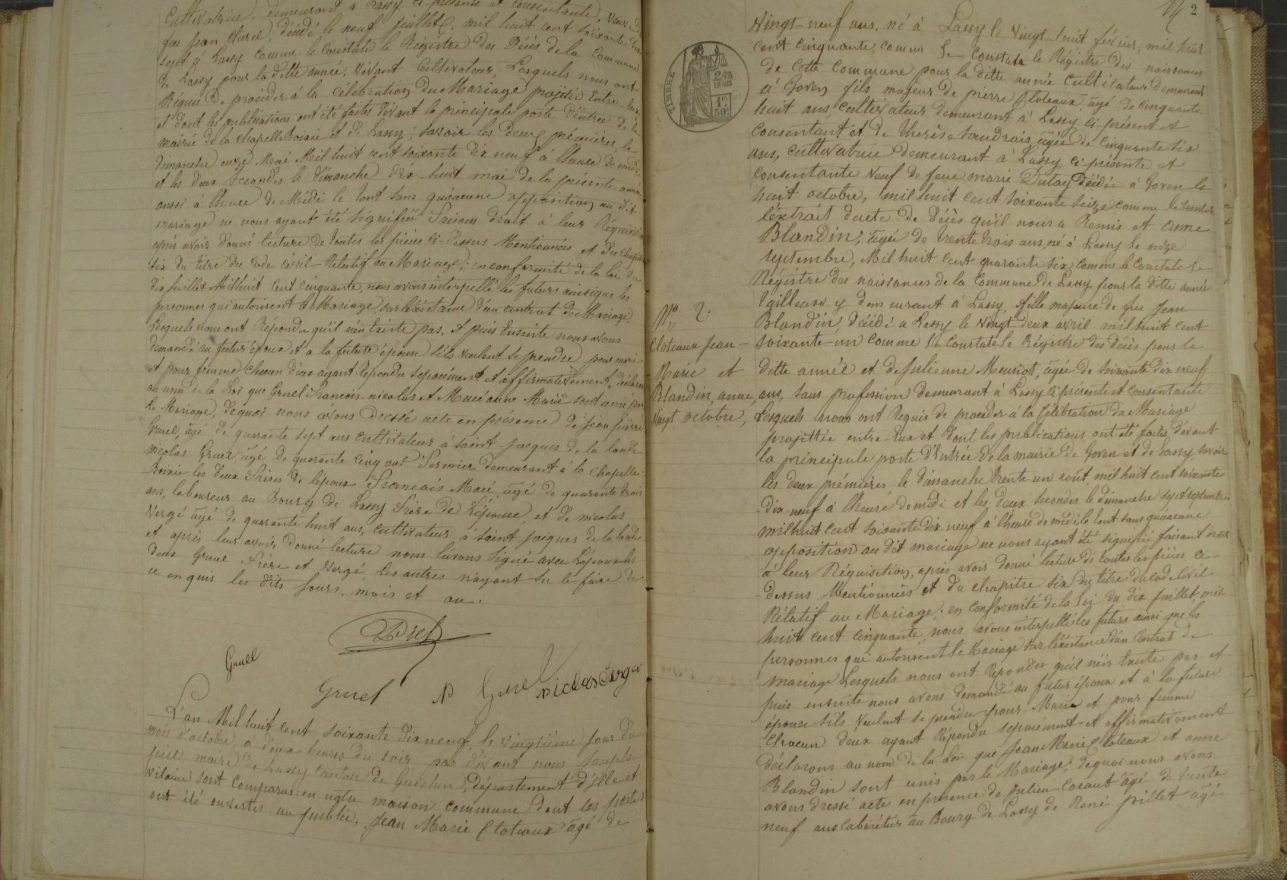 cultivatrice, demeurant à Lassy ci présente et consentante, veuve de
feu Jean Hurel, décédé le neuf juillet, mil huit cent soixante dix
sept à Lassy comme le constate le Régistre des Décès de la Commune
de Lassy pour la ditte année, vivant cultivateur, Lesquels nous ont
Réquis de procéder à la célébration du Mariage projetté Entre eux
et dont les publications ont été faites devant la principale porte d'entrée de la
mairie de la Chapelle Bouexic et de Lassy; savoir les Deux premières, le
dimanche onze Mai Mil huit cent soixante dix neuf à l'heure de midi
et les deux secondes le dimanche dix huit mai de la présente année
aussi à l'heure de Midi le tout sans qu'aucune opposition au dit
mariage ne nous ayant été signifiée faisons droit à leur Réquisition
après avoir donné lecture de toutes les pièces ci-Dessus Mentionnées et du chapitre
six du titre du Code Civil Rélatif au Mariage; en conformité de la loi du
dix juillet Mil huit cent cinquante, nous avons interpellé les futurs ainsi que les
personnes qui autorisent le Mariage sur l'éxistance d'un contrat de Mariage
Lesquels nous ont Répondu qu'il n'en éxiste pas. Et puis Ensuite nous avons
demandé au futur époux et a la future épouse s'ils veulent se prendre pour mari
et pour femme chacun deux ayant répondu séparément et affirmativement, déclarons
au nom de la Loi que Gruel François nicolas et Macé anne Marie sont unis par
le Mariage, de quoi nous avons Dressé acte en présence de jean pierre
Gruel, âgé de quarante sept ans cultivateur à saint-jacques de la lande
nicolas Gruel âgé de quarante cinq ans Fermier demeurant à la chapelle
Bouexic les deux Frères de l'époux François Macé, âgé de quarante trois
ans, laboureur au Bourg de Lassy Frère de l'épouse, et de nicolas
Vergé âgé de quarante huit ans, cultivateur à saint jacques de la lande
et après leur avoir donné lecture nous l'avons signé avec l'époux les
deux Gruel Frère et Vergé, les autres n'ayant su le faire de
ce enquis les dits jours, mois et an.
Gruel
Gruel N Gruel nicolas Verger
L'an Mil huit cent soixante dix neuf, le vingtième jour du
mois d'octobre, à deux heures du soir, par devant nous
maire de Lassy canton de Guichen, département d'Ille et
Vilaine sont comparus en notre maison commune dont les portes
ont été ouvertes au public. Jean Marie Cloteaux âgé de
N° 2.
Cloteaux Jean-
Marie et
Blandin, anne,
vingt octobre,
2
vingt-neuf ans, né à Lassy le vingt huit février, mil huit
cent cinquante, comme le constate le Régistre des naissances
de cette Commune pour la ditte année cultivateur demeurant
à Goven fils majeur de pierre Cloteaux, âgé de cinquante
huit ans, cultivateur demeurant à Lassy ci présent et
consentant et de thérèse âgée de cinquante six
ans, cultivatrice demeurant à Lassy ci présente et
consentante veuf de feue marie Dutay décédée à Goven le
huit octobre, mil huit cent soixante seize comme le constate
l'extrait d'acte de Décès qu'il nous a Remis et anne
Blandin, âgée de trente trois ans, né à Lassy le onze
septembre, Mil huit cent quarante six comme le Constate le
Régistre des naissances de la Commune de Lassy pour la ditte année
tailleuse y demeurant à Lassy, fille majeure de feu Jean
Blandin, décédé a Lassy le vingt-deux avril mil huit cent
soixante-un comme le Constate le Régistre des décès pour la
ditte année et de julienne Meuriot, âgée de soixante dix neuf
ans, sans profession demeurant à Lassy ci présente et consentante
Lesquels nous ont Réquis de procéder à la Célébration du Mariage
projettée entre eux et dont les publications ont été faites devant
la principale porte d'entrée de la mairie de Goven et de Lassy, savoir
les deux premières, le dimanche trente-un août, mil huit cent soixante
dix-neuf à l'heure de midi et les deux secondes le dimanche sept septembre
mil huit cent soixante dix neuf à l'heure de midi le tout sans qu'aucune
opposition au dit mariage ne nous ayant été signifiée faisant droit
à leur Réquisition, après avoir donné lecture de toutes les pièces ci-
dessus Mentionnées et du chapitre six du titre du code Civil
Rélatif au Mariage; en conformité de la loi du dix juillet mil
huit cent cinquante, nous avons interpellé les futurs ainsi que les
personnes qui autorisent le Mariage sur l'éxistance d'un contrat de
mariage Lesquels nous ont Répondu qu'il n'en éxiste pas et
puis ensuite nous avons demandé au futur époux et à la future
épouse s'ils veulent se prendre pour Mari et pour femme
chacun deux ayant Répondu séparément et affirmativement
déclarons au nom de la Loi que Jean Marie Cloteaux et anne
Blandin sont unis par le Mariage, de quoi nous avons
avons dressé acte en présence de julien Cocaut âgé de trente
neuf ans cabaretier au Bourg de Lassy de René âgé